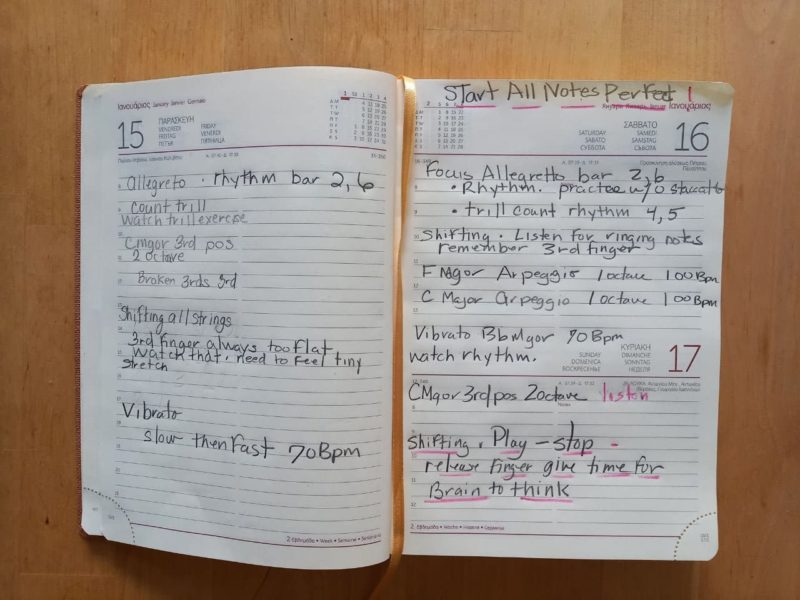 Ιανουάριος January Janvier Gennaio
15
ΠΑΡΑΣΚΕΥΗ
VENDREDI FRIDAY
FREITAG VENERDI
15-350
Allegreto · rhythm bar 2, 6
count trill
Watch trill exercise
CMgor 3rd pos
2 octave
Broken 3rds 3rd
Shifting all strings
3rd finger always too flat
Watch that · need to feel tiny
stretch
Vibrato
slow then Fast 70 Bpm
2 εβδομάδα • Week • Semaine •
START All Notes Perfect !
Ιανουάριος
ΣΑΒΒΑΤΟ
16
SATURDAY SAMEDI
SAMSTAG
SUBOTA
16-349
Focus Allegretto bar 2, 6
• Rhythm. practce w/o staccato
• trill count rhythm 4, 5
Shifting · Listen for ringing notes
remember 3rd finger
F Mgor Arpeggio 1 octave 100 Bpm
C Major arpeggio 1 octave 100 Bpm
Vibrato Bb Mgor 70 Bpm
watch rhythm.
ΚΥΡΙΑΚΗ
17
SUNDAY DIMANCHE
DOMENICA SONNTAG
Notes
CMgor 3rd pos 2octave listen
Shifting . Play – stop –
release finger give time for
Brain to think
2 εβδομάδα •